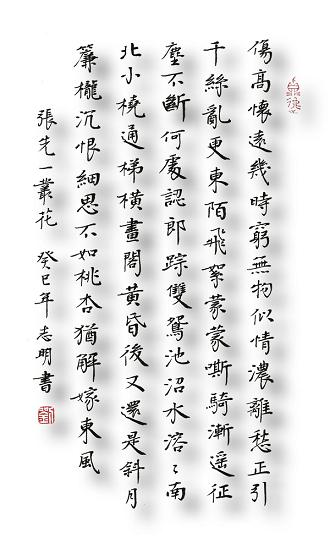 傷高懷遠幾時窮無物似情濃離愁正引
千絲亂更東陌飛絮蒙蒙嘶騎漸遥征
塵不斷何處認郎踪雙鴛池沼水溶〻南
北小橈通梯橫畫閣黄昏後又還是斜月
簾櫳沉恨細思不如桃杏猶解嫁東風
張先一叢花 癸巳年志明書